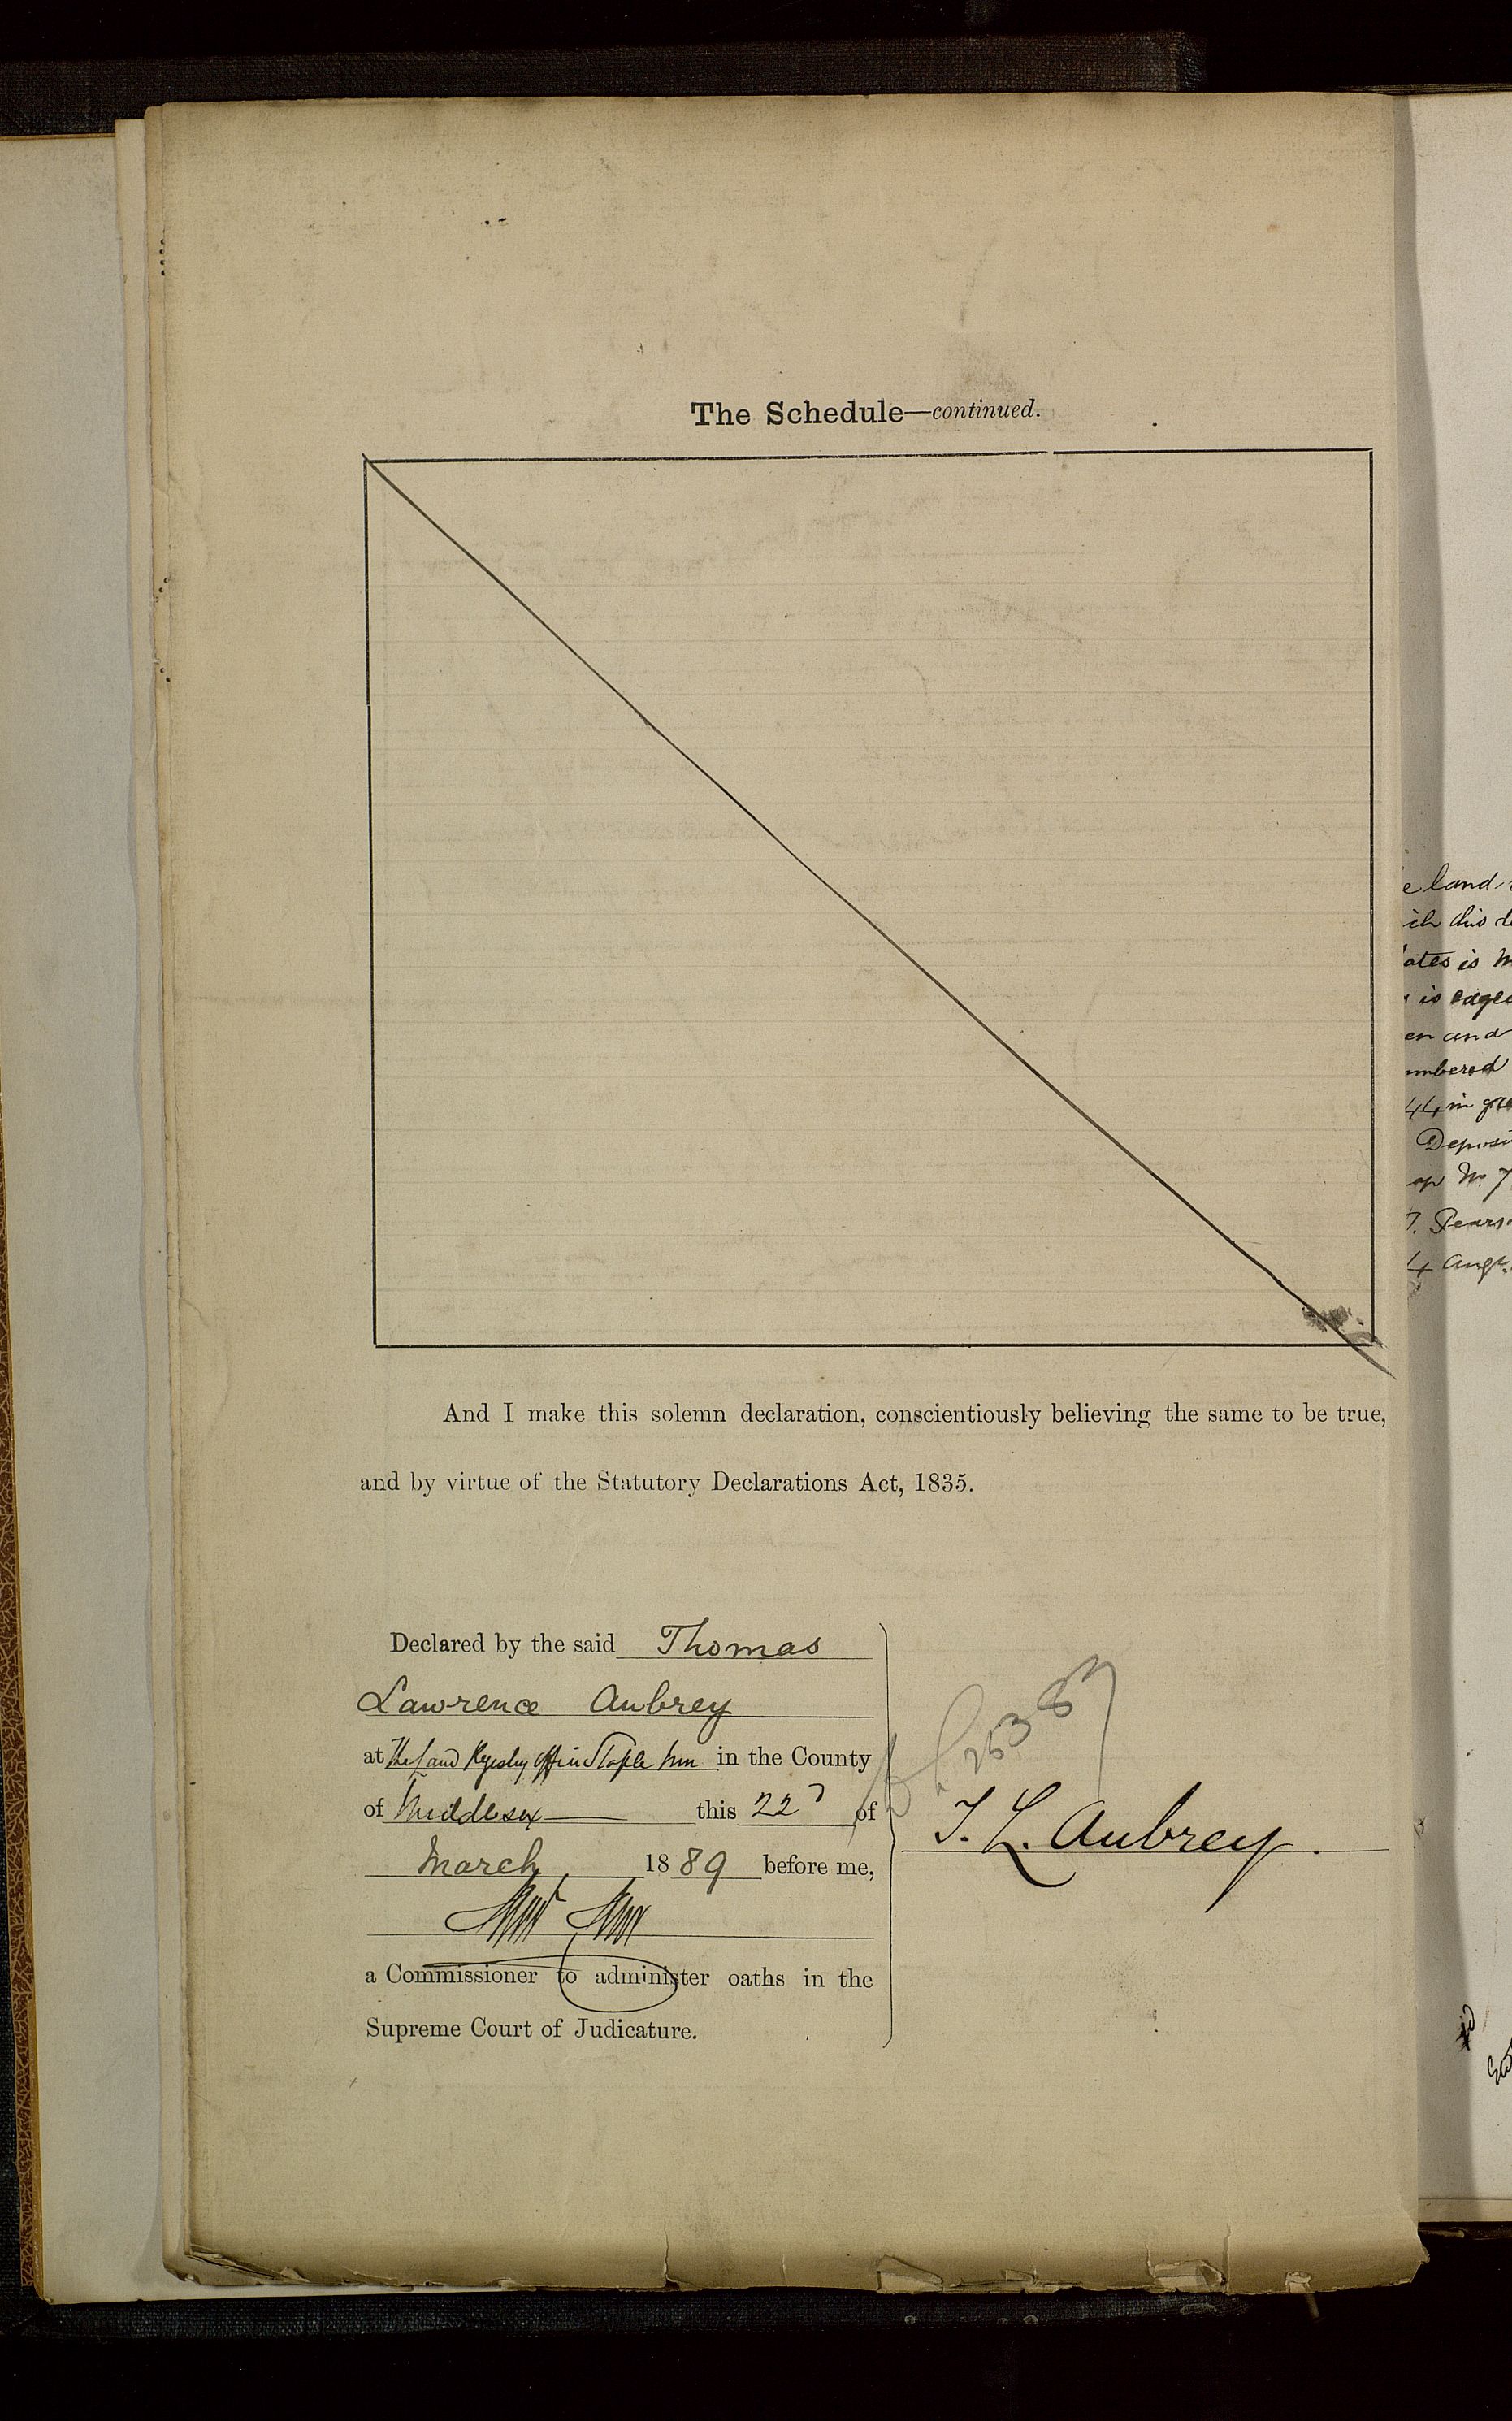 The Schedule—continued.
And I make this solemn declaration, conscientiously believing the same to be true,
and by virtue of the Statutory Declarations Act, 1835.
Declared by the said Thomas
Lawrence Aubrey
at The Land Registry Office Staple Inn in the County
of Middlesex this 22d of
March 1889 before me,
a Commissioner to administer oaths in the
Supreme Court of Judicature.
25387
T. L. Aubrey.
e land
ich this d
ates is m
is edged
en and
umbered
44 in gre
Deposi
ap No. 7
7. Pearso
4 Augt.